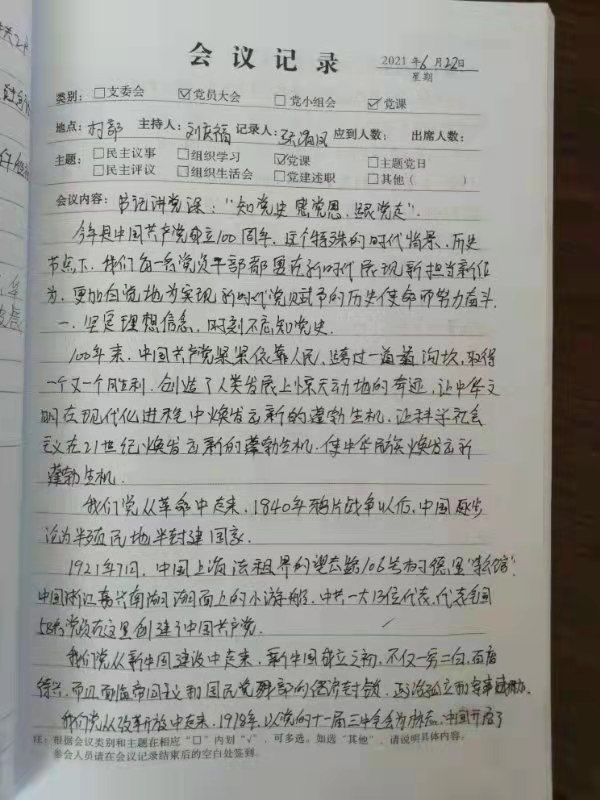 会议记录
2021年6月22日
星期
类别：□支委会 ☑党员大会 □党小组会 ☑党课
地点：村部 主持人：刘庆福 记录人： 应到人数： 出席人数：
主题：□民主议事 □组织学习 ☑党课 □主题党日
□民主评议 □组织生活会 □党建述职 □其他（ ）
会议内容：书记讲党课："知党史 感党恩，跟党走"．
今年是中国共产党成立100周年，这个特殊的时代背景，历史
节点下，我们每一名党员干部都要在新时代展现新担当新作
为，更加自觉地为实现新时代党赋予的历史使命而努力奋斗．
一、坚定理想信念，时刻不忘知党史．
100年来，中国共产党紧紧依靠人民，跨过一道道沟坎，取得
一个又一个胜利．创造了人类发展上惊天动地的奇迹，让中华文
明在现代化进程中焕发出新的蓬勃生机，让科学社会
主义在21世纪焕发出新的蓬勃生机，使中华民族焕发出新
蓬勃生机．
我们党从革命中走来，1840年鸦片战争以后，中国逐步
沦为半殖民地半封建国家．
1921年7月，中国上海法租界的望志路106号 "李公馆"
中国浙江嘉兴南湖湖面上的小游船，中共一大13位代表，代表全国
58名党员在这里创建了中国共产党．
我们党从新中国建设中走来，新中国成立之初，不仅一穷二白，百废
待兴，而且面临帝国主义和国民党残部的经济封锁，政治孤立和军事威胁．
我们党从改革开放中走来，1978年，以党的十一届三中全会为标志，中国开启了
注：根据会议类别和主题在相应"□"内划"√"，可多选。如选"其他"，请说明具体内容；
参会人员请在会议记录结束后的空白处签到。